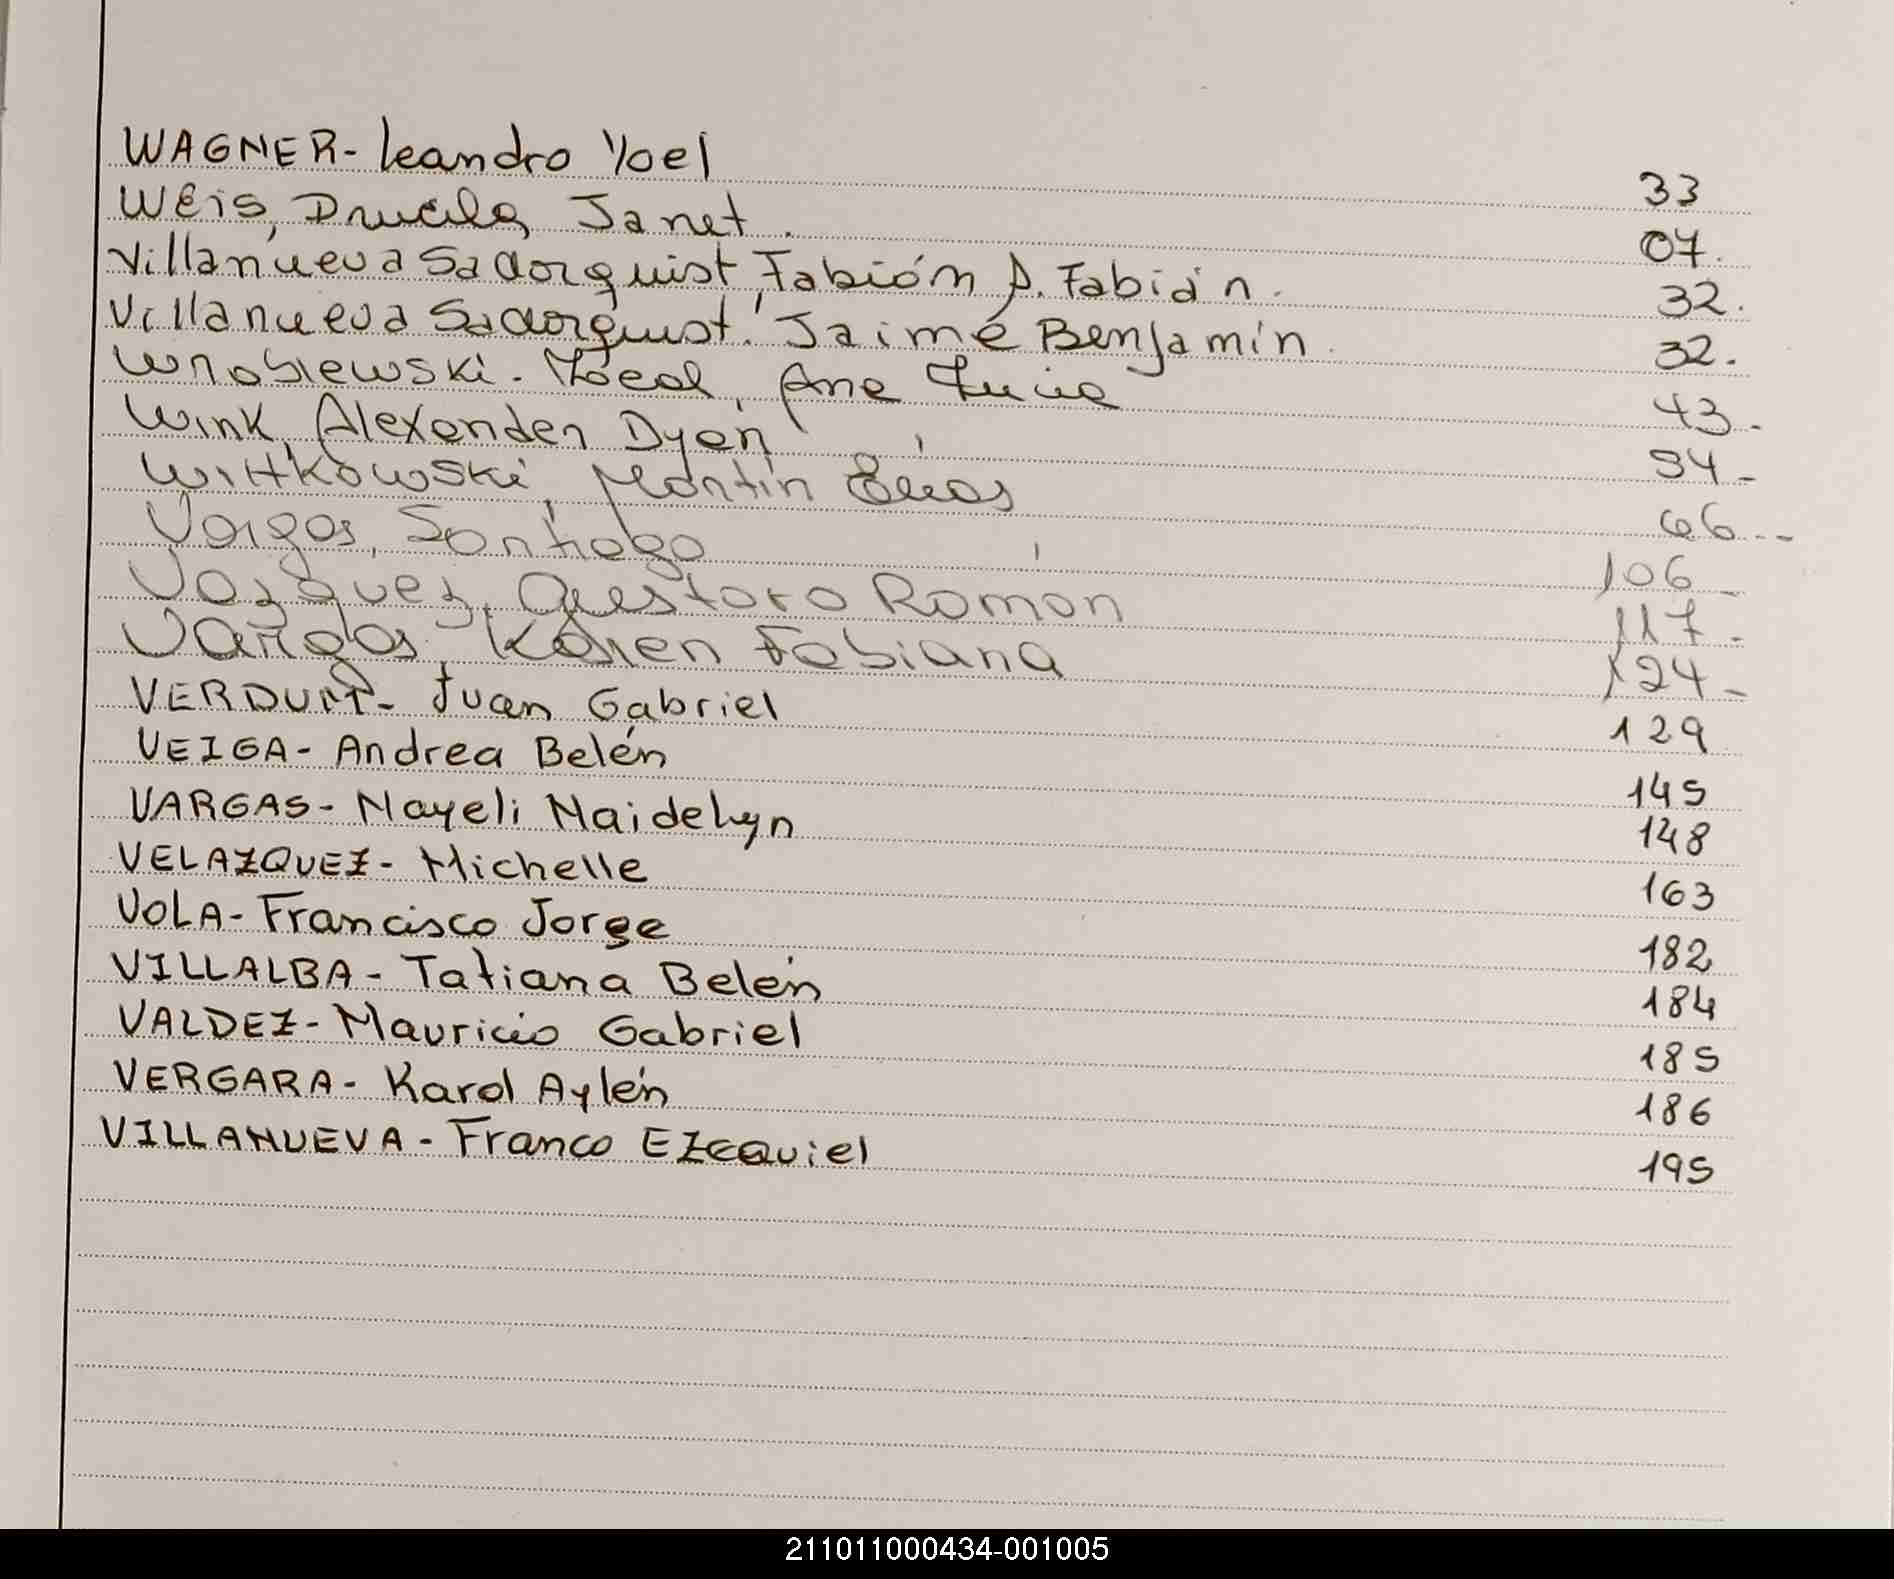 WAGNER- Leandro Yoel 33
Weis, Drucila Janet. 07.
Villanueva Sadorquist, Fabión A. Fabián. 32.
Villanueva Sadorquist. Jaime Benjamín. 32.
Wroblewski. Ana Lucia 43-
Wink, Alexander Dyan 94-
Wittkowski, Martín Elías 66--
Vargas, Santiago 106-
Vazquez, Questoro Román 117-
Vargas, Karen Fabiana 124-
VERDUN- Juan Gabriel 129
VEIGA- Andrea Belén 145
VARGAS- Mayeli Maidelyn 148
VELAZQUEZ- Michelle 163
VOLA- Francisco Jorge 182
VILLALBA- Tatiana Belén 184
VALDEZ- Mauricio Gabriel 185
VERGARA- Karol Aylén 186
VILLANUEVA- Franco EZEQuiel 195
211011000434-001005